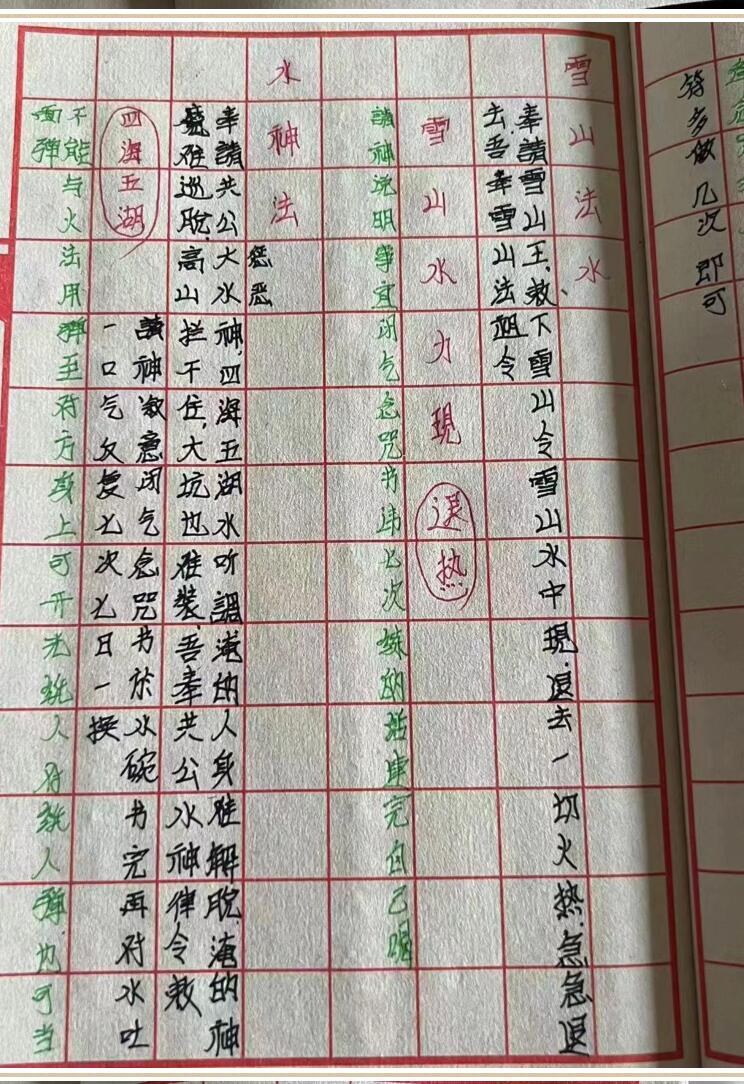 符多做几次即可
雪山法水
奉請雪山王,敕下雪山令雪山水中現,退去一切火热,急急退
去,吾奉雪山法祖令
雪山水力現 退热
請神说明事宜闭气念咒书讳七次炼的话建完自己喝
水神法
奉請共公大水神,四海五湖水听調淹的人身难解脫,淹的神
魂难巡脫,高山拦不住,大坑也难裝,吾奉共公水神律令敕
四海五湖
請神激意闭气念咒书於水碗书完再对水吐
一口气反复七次七日一換
不能
面弹与火法用弹至对方身上可开光统人对统人弹也可当